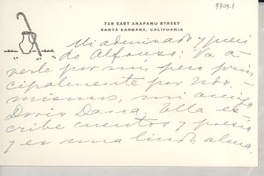 729 EAST ANAPAMU STREET
SANTA BARBARA, CALIFORNIA
Mi admirado y queri-
do Alfonso: Va a
verlo por mí, pero prin-
cipalmente por Uds.
mismos, mi amiga
Doris Dana. Ella es-
cribe cuentos y poesía
y es una linda alma